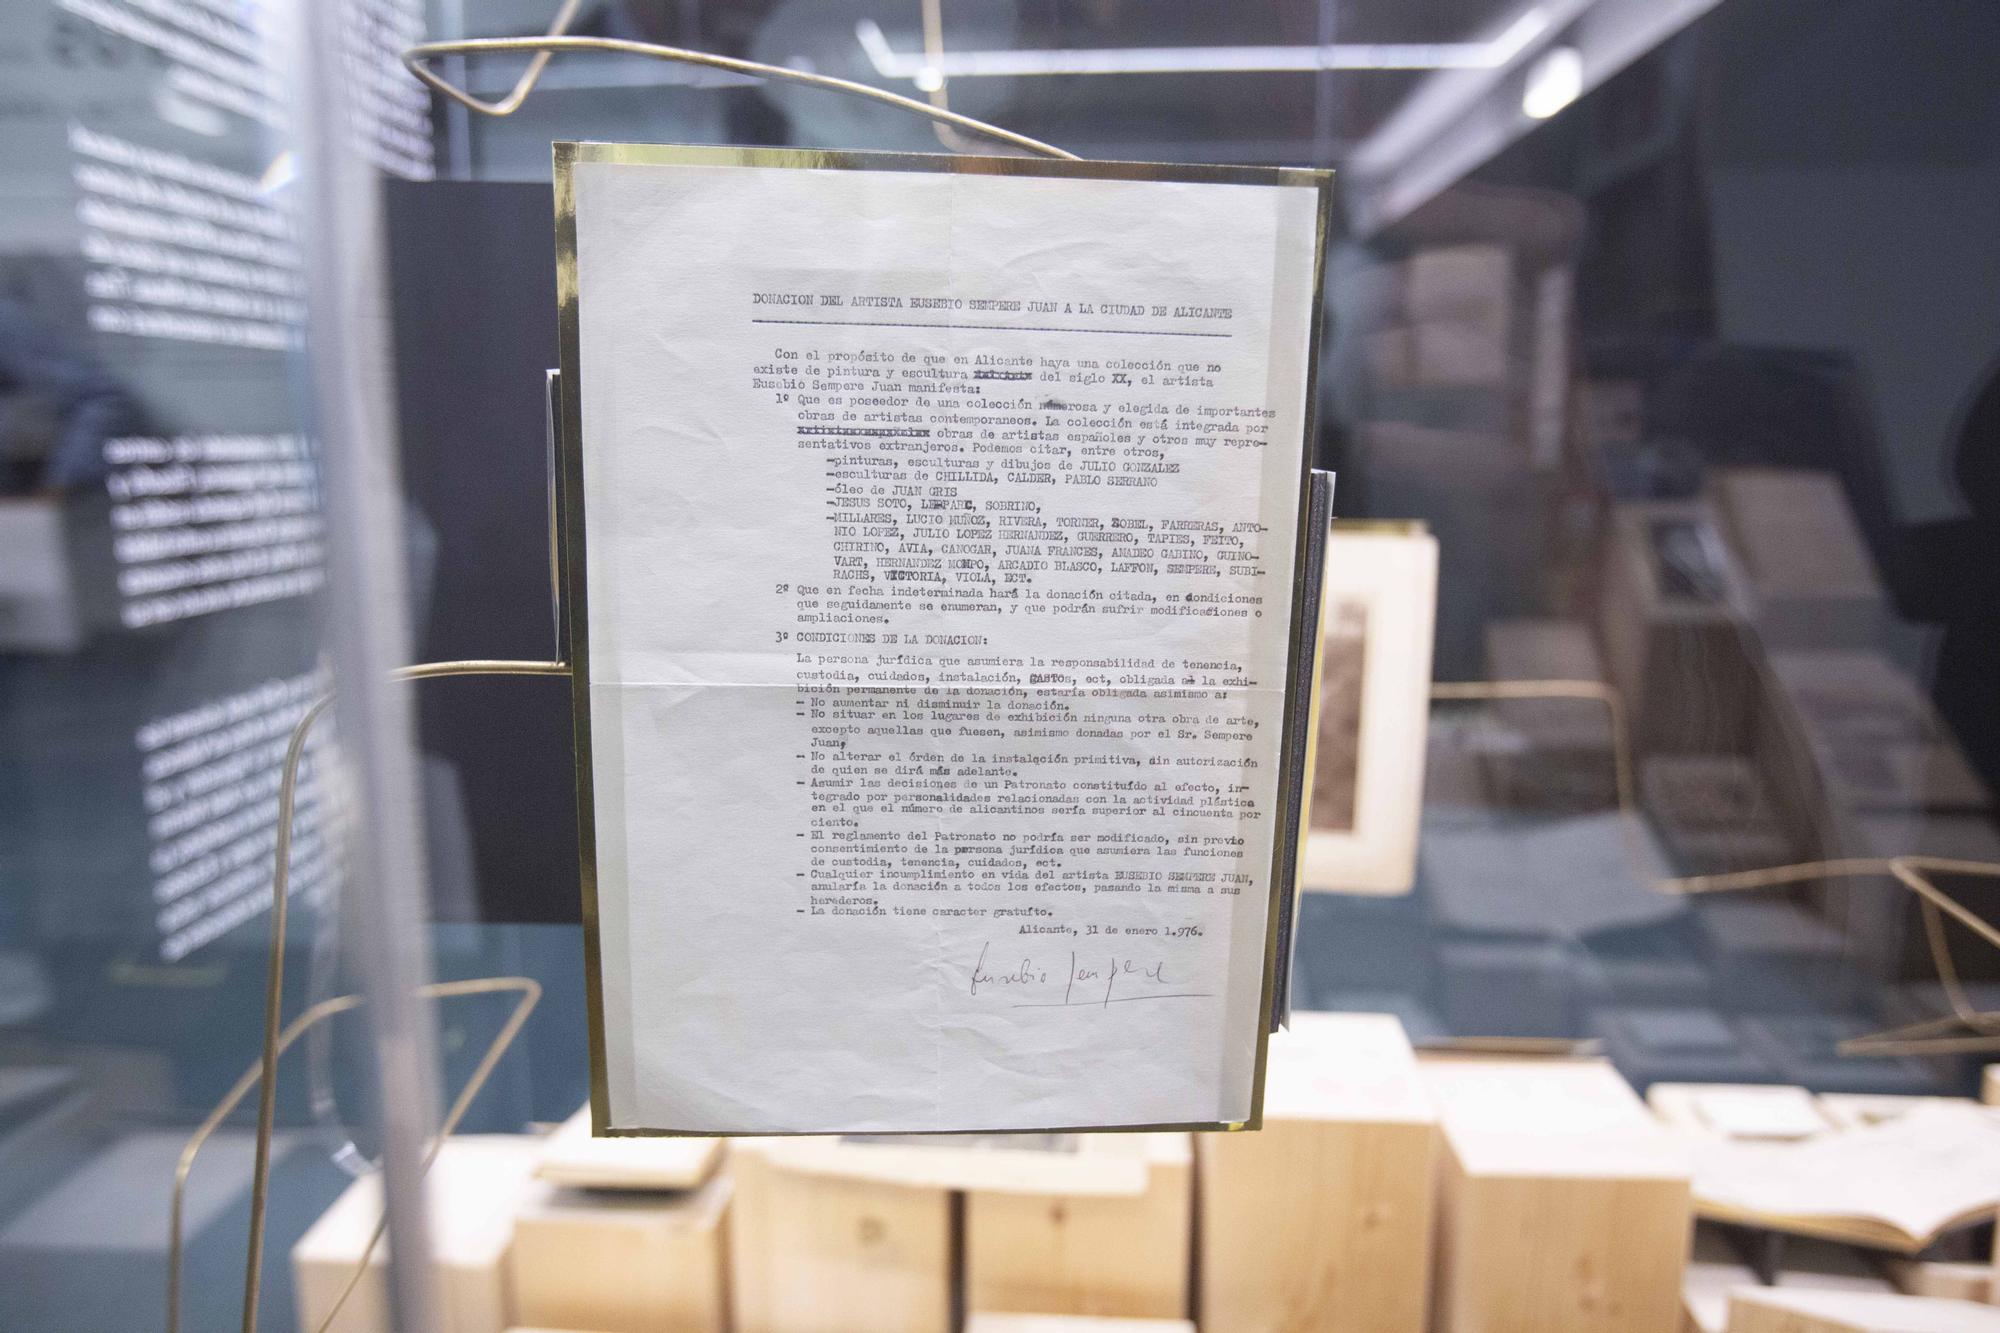 DONACION DEL ARTISTA EUSEBIO SEMPERE JUAN A LA CIUDAD DE ALICANTE
Con el propósito de que en Alicante haya una colección que no
existe de pintura y escultura del siglo XX, el artista
Eusebio Sempere Juan manifesta:
1º Que es poseedor de una colección numerosa y elegida de importantes
obras de artistas contemporaneos. La colección está integrada por
obras de artistas españoles y otros muy repre-
sentativos extranjeros. Podemos citar, entre otros,
-pinturas, esculturas y dibujos de JULIO GONZALEZ
-esculturas de CHILLIDA, CALDER, PABLO SERRANO
-óleo de JUAN GRIS
-JESUS SOTO, LEPARC, SOBRINO,
-MILLARES, LUCIO MUÑOZ, RIVERA, TORNER, ZOBEL, FARRERAS, ANTO-
NIO LOPEZ, JULIO LOPEZ HERNANDEZ, GUERRERO, TAPIES, FEITO,
CHIRINO, AVIA, CANOGAR, JUANA FRANCES, AMADEO GABINO, GUINO-
VART, HERNANDEZ MOMPO, ARCADIO BLASCO, LAFFON, SEMPERE, SUBI-
RACHS, VICTORIA, VIOLA, ECT.
2º Que en fecha indeterminada hará la donación citada, en condiciones
que seguidamente se enumeran, y que podrán sufrir modificaciones o
ampliaciones.
3º CONDICIONES DE LA DONACION:
La persona jurídica que asumiera la responsabilidad de tenencia,
custodia, cuidados, instalación, GASTOS, ect, obligada a la exhi-
bición permanente de la donación, estaría obligada asimismo a:
- No aumentar ni disminuir la donación.
- No situar en los lugares de exhibición ninguna otra obra de arte,
excepto aquellas que fuesen, asimismo donadas por el Sr. Sempere
Juan,
- No alterar el órden de la instalación primitiva, sin autorización
de quien se dirá más adelante.
- Asumir las decisiones de un Patronato constituído al efecto, in-
tegrado por personalidades relacionadas con la actividad plástica
en el que el número de alicantinos sería superior al cincuenta por
ciento.
- El reglamento del Patronato no podría ser modificado, sin previo
consentimiento de la persona jurídica que asumiera las funciones
de custodia, tenencia, cuidados, ect.
- Cualquier incumplimiento en vida del artista EUSEBIO SEMPERE JUAN,
anularía la donación a todos los efectos, pasando la misma a sus
herederos.
- La donación tiene caracter gratuíto.
Alicante, 31 de enero 1.976.
Eusebio Sempere